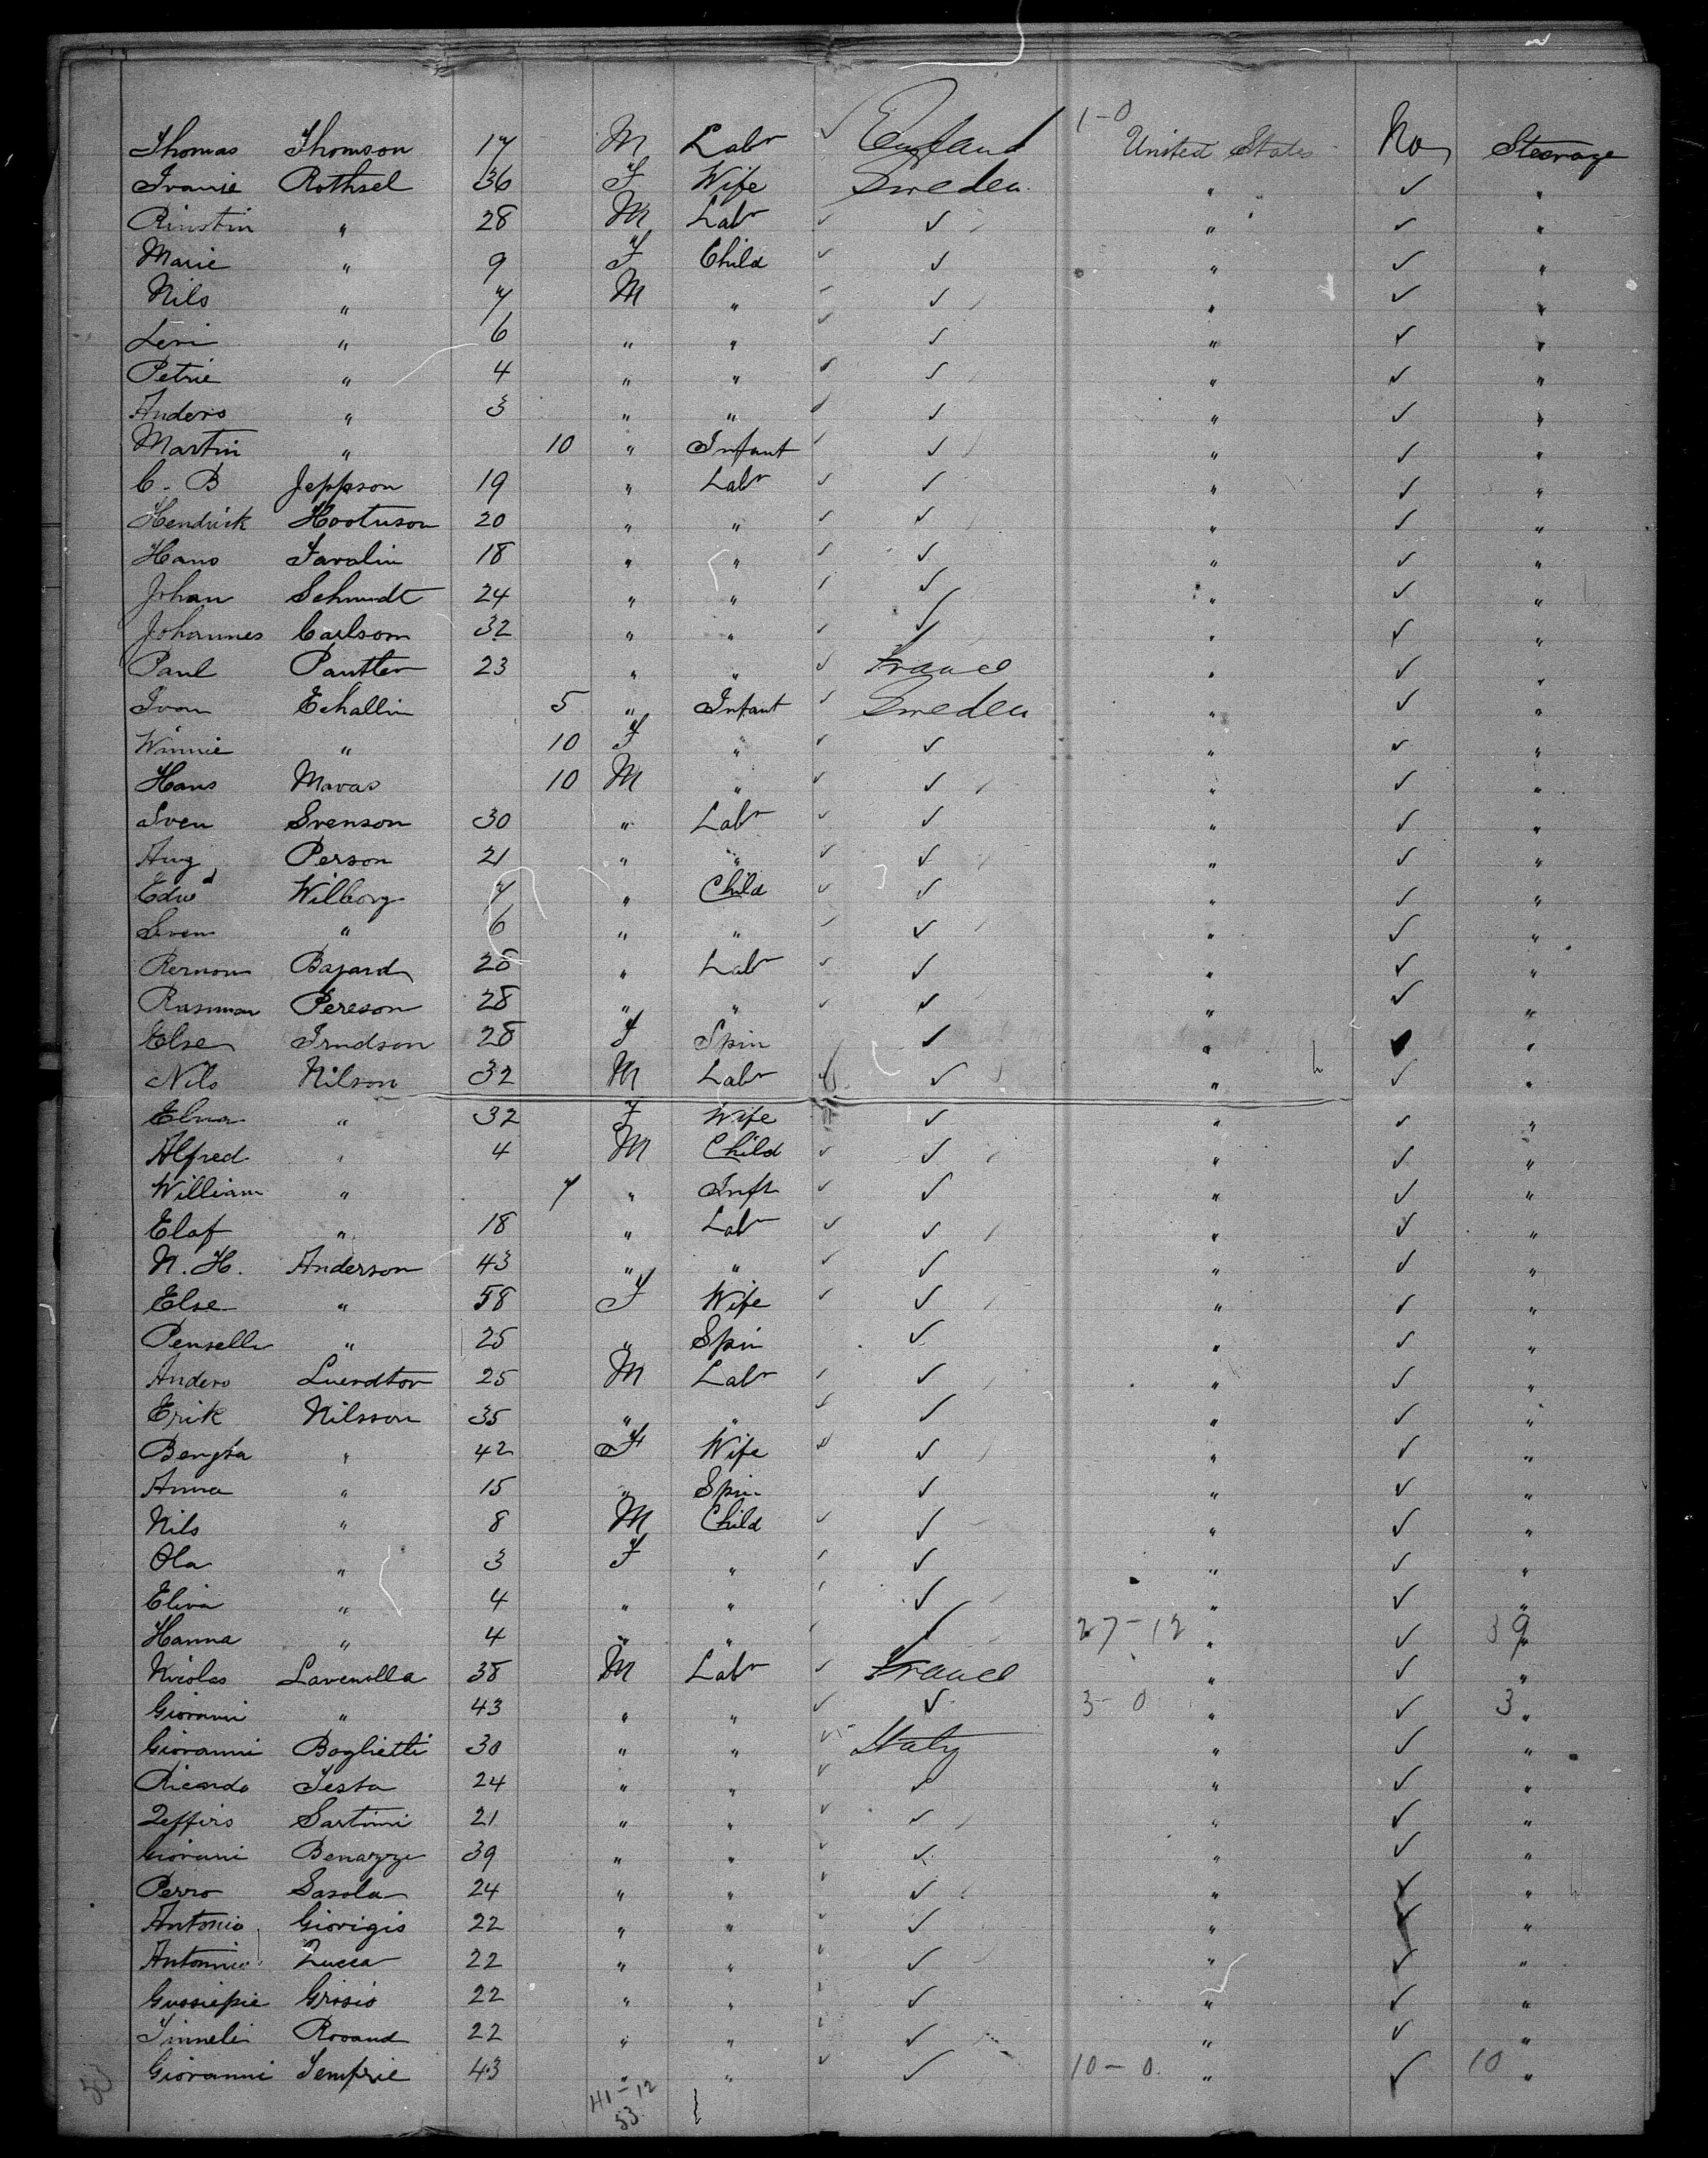 1-0
Thomas Thomson 17 M Labr ✓ England United States No Steerage
Ivanie Rothsel 36 F Wife Sweden " ✓ "
Rinstin " 28 M Labr ✓ ✓ " ✓ "
Marie " 9 F Child ✓ ✓ " ✓ "
Nils " 7 M " ✓ ✓ " ✓ "
Levi " 6 " " ✓ ✓ " ✓ "
Petrie " 4 " " ✓ ✓ " ✓ "
Anders " 3 " " ✓ ✓ " ✓ "
Martin " 10 " Infant ✓ ✓ " ✓ "
C. B Jeppson 19 " Labr ✓ ✓ " ✓ "
Hendrick 20 " " ✓ ✓ " ✓ "
Hans Favalin 18 " " ✓ ✓ " ✓ "
Johan Schmidt 24 " " ✓ ✓ " ✓ "
Johannes Carlsom 32 " " ✓ ✓ " ✓ "
Paul Pautler 23 " " ✓ France " ✓ "
Ivan Echallin 5 " Infant ✓ Sweden " ✓ "
Winnie " 10 F " ✓ ✓ " ✓ "
Hans Mavas 10 M " ✓ ✓ " ✓ "
Sven Svenson 30 " Labr ✓ ✓ " ✓ "
Aug Person 21 " " ✓ ✓ " ✓ "
Edwd Wilborg 7 " Child ✓ ✓ " ✓ "
Sven " 6 " " ✓ ✓ " ✓ "
Bajard 28 " Labr ✓ ✓ " ✓ "
Rasmon Pereson 28 " " ✓ ✓ " ✓ "
Else Irndson 28 F Spin ✓ " ✓ "
Nils Nilson 32 M Labr ✓ ✓ " ✓ "
Elna " 32 F Wife ✓ " ✓ "
Alfred " 4 M Child ✓ ✓ " ✓ "
William " 7 " Inft ✓ ✓ " ✓ "
Elof " 18 " Labr ✓ ✓ " ✓ "
N. H. Anderson 43 " " ✓ ✓ " ✓ "
Else " 58 F Wife ✓ ✓ " ✓ "
Pensella " 25 " Spin ✓ " ✓ "
Anders Luerdtor 25 M Labr ✓ ✓ " ✓ "
Erik Nilsson 35 " " ✓ ✓ " ✓ "
Bengta " 42 F Wife ✓ ✓ " ✓ "
Anna " 15 " Spin ✓ " ✓ "
Nils " 8 M Child ✓ ✓ " ✓ "
Ola " 3 F " ✓ ✓ " ✓ "
Eliva " 4 " " ✓ ✓ " ✓ "
Hanna " 4 " " ✓ ✓ 27-12 " ✓ 39 "
Nicolas Lavenolla 38 M Labr ✓ France " ✓ "
Giovanni " 43 " " ✓ ✓ 3-0 " ✓ 3 "
Giovanni Boglietti 30 " " ✓ Italy " ✓ "
Ricardo Testa 24 " " ✓ ✓ " ✓ "
Zeffiro Sartini 21 " " ✓ ✓ " ✓ "
Giovani Benazze 39 " " ✓ ✓ " ✓ "
Perro Sasola 24 " " ✓ ✓ " ✓ "
Antonio Giorigis 22 " " ✓ ✓ " ✓ "
Antonnio Zucca 22 " " ✓ ✓ " ✓ "
Guosiepie Grosio 22 " " ✓ ✓ " ✓ "
Rovaud 22 " " ✓ ✓ " ✓ "
Giovanni Semprie 43 " " ✓ ✓ 10-0 " ✓ 10 "
41-12
53